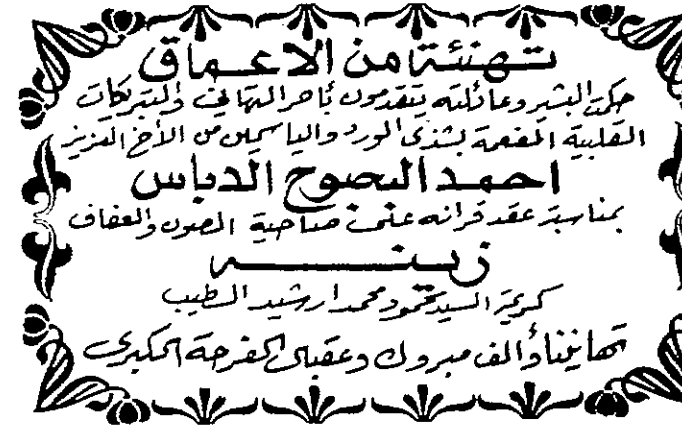 تهنئة من الاعماق
حكمت البشير وعائلته يتقدمون بأحر التهاني والتبركات
القلبية المفعمة بشذى الورد والياسمين من الأخ العزيز
احمد النصوح الدباس
بمناسبة عقد قرانه على صاحبة الصون والعفاف
زينه
كريمة السيد محمود محمد ارشيد الخطيب
تهانينا وألف مبروك وعقبال الفرحة الكبرى